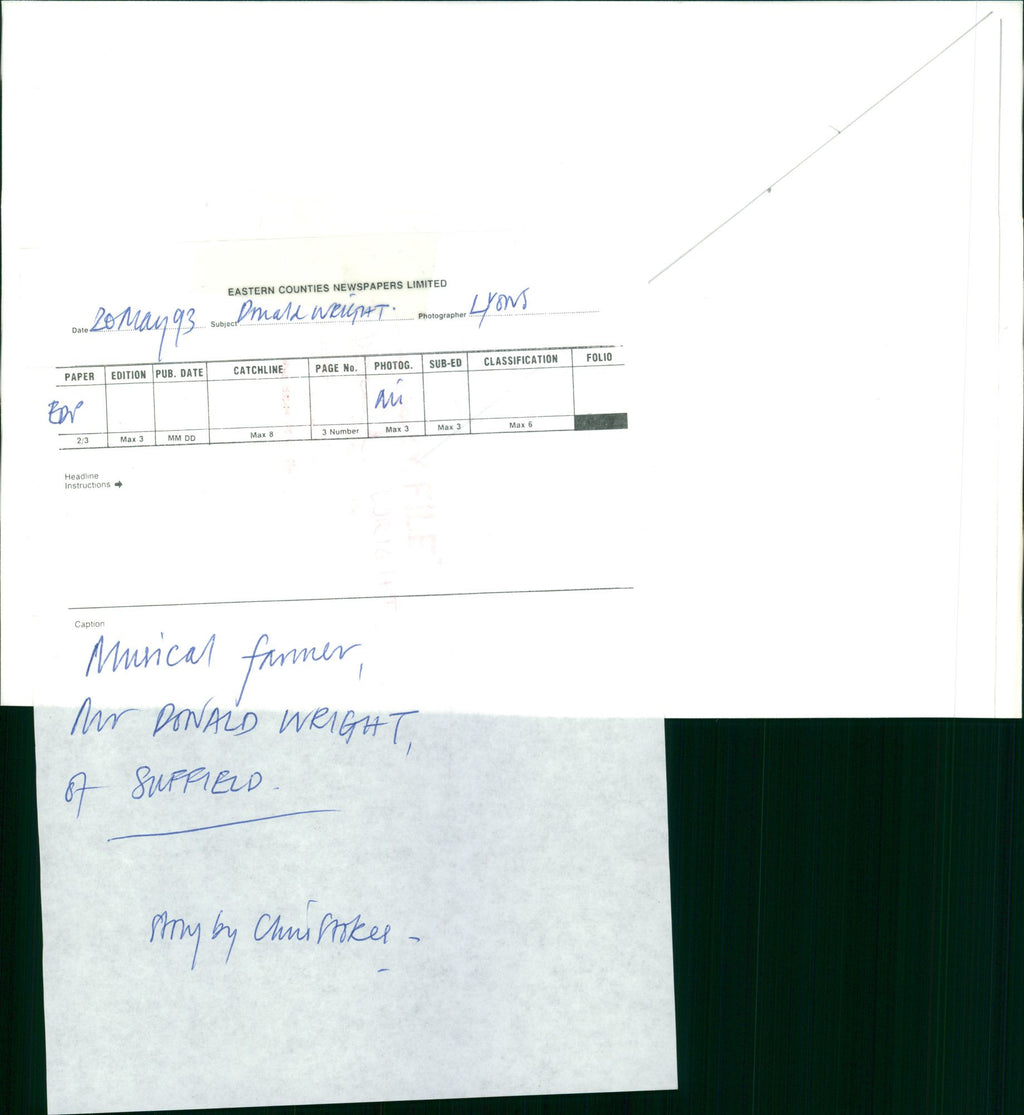 EASTERN COUNTIES NEWSPAPERS LIMITED
Date 20 May 93 Subject Donald WRIGHT. Photographer Lyons
PAPER EDITION PUB. DATE CATCHLINE PAGE No. PHOTOG. SUB-ED CLASSIFICATION FOLIO
EDP
2/3 Max 3 MM DD Max 8 3 Number Max 3 Max 3 Max 6
Headline
Instructions ➡
FILE
WRIGHT
Caption
Musical farmer,
Mr DONALD WRIGHT,
of SUFFIELD.
Story by Chris